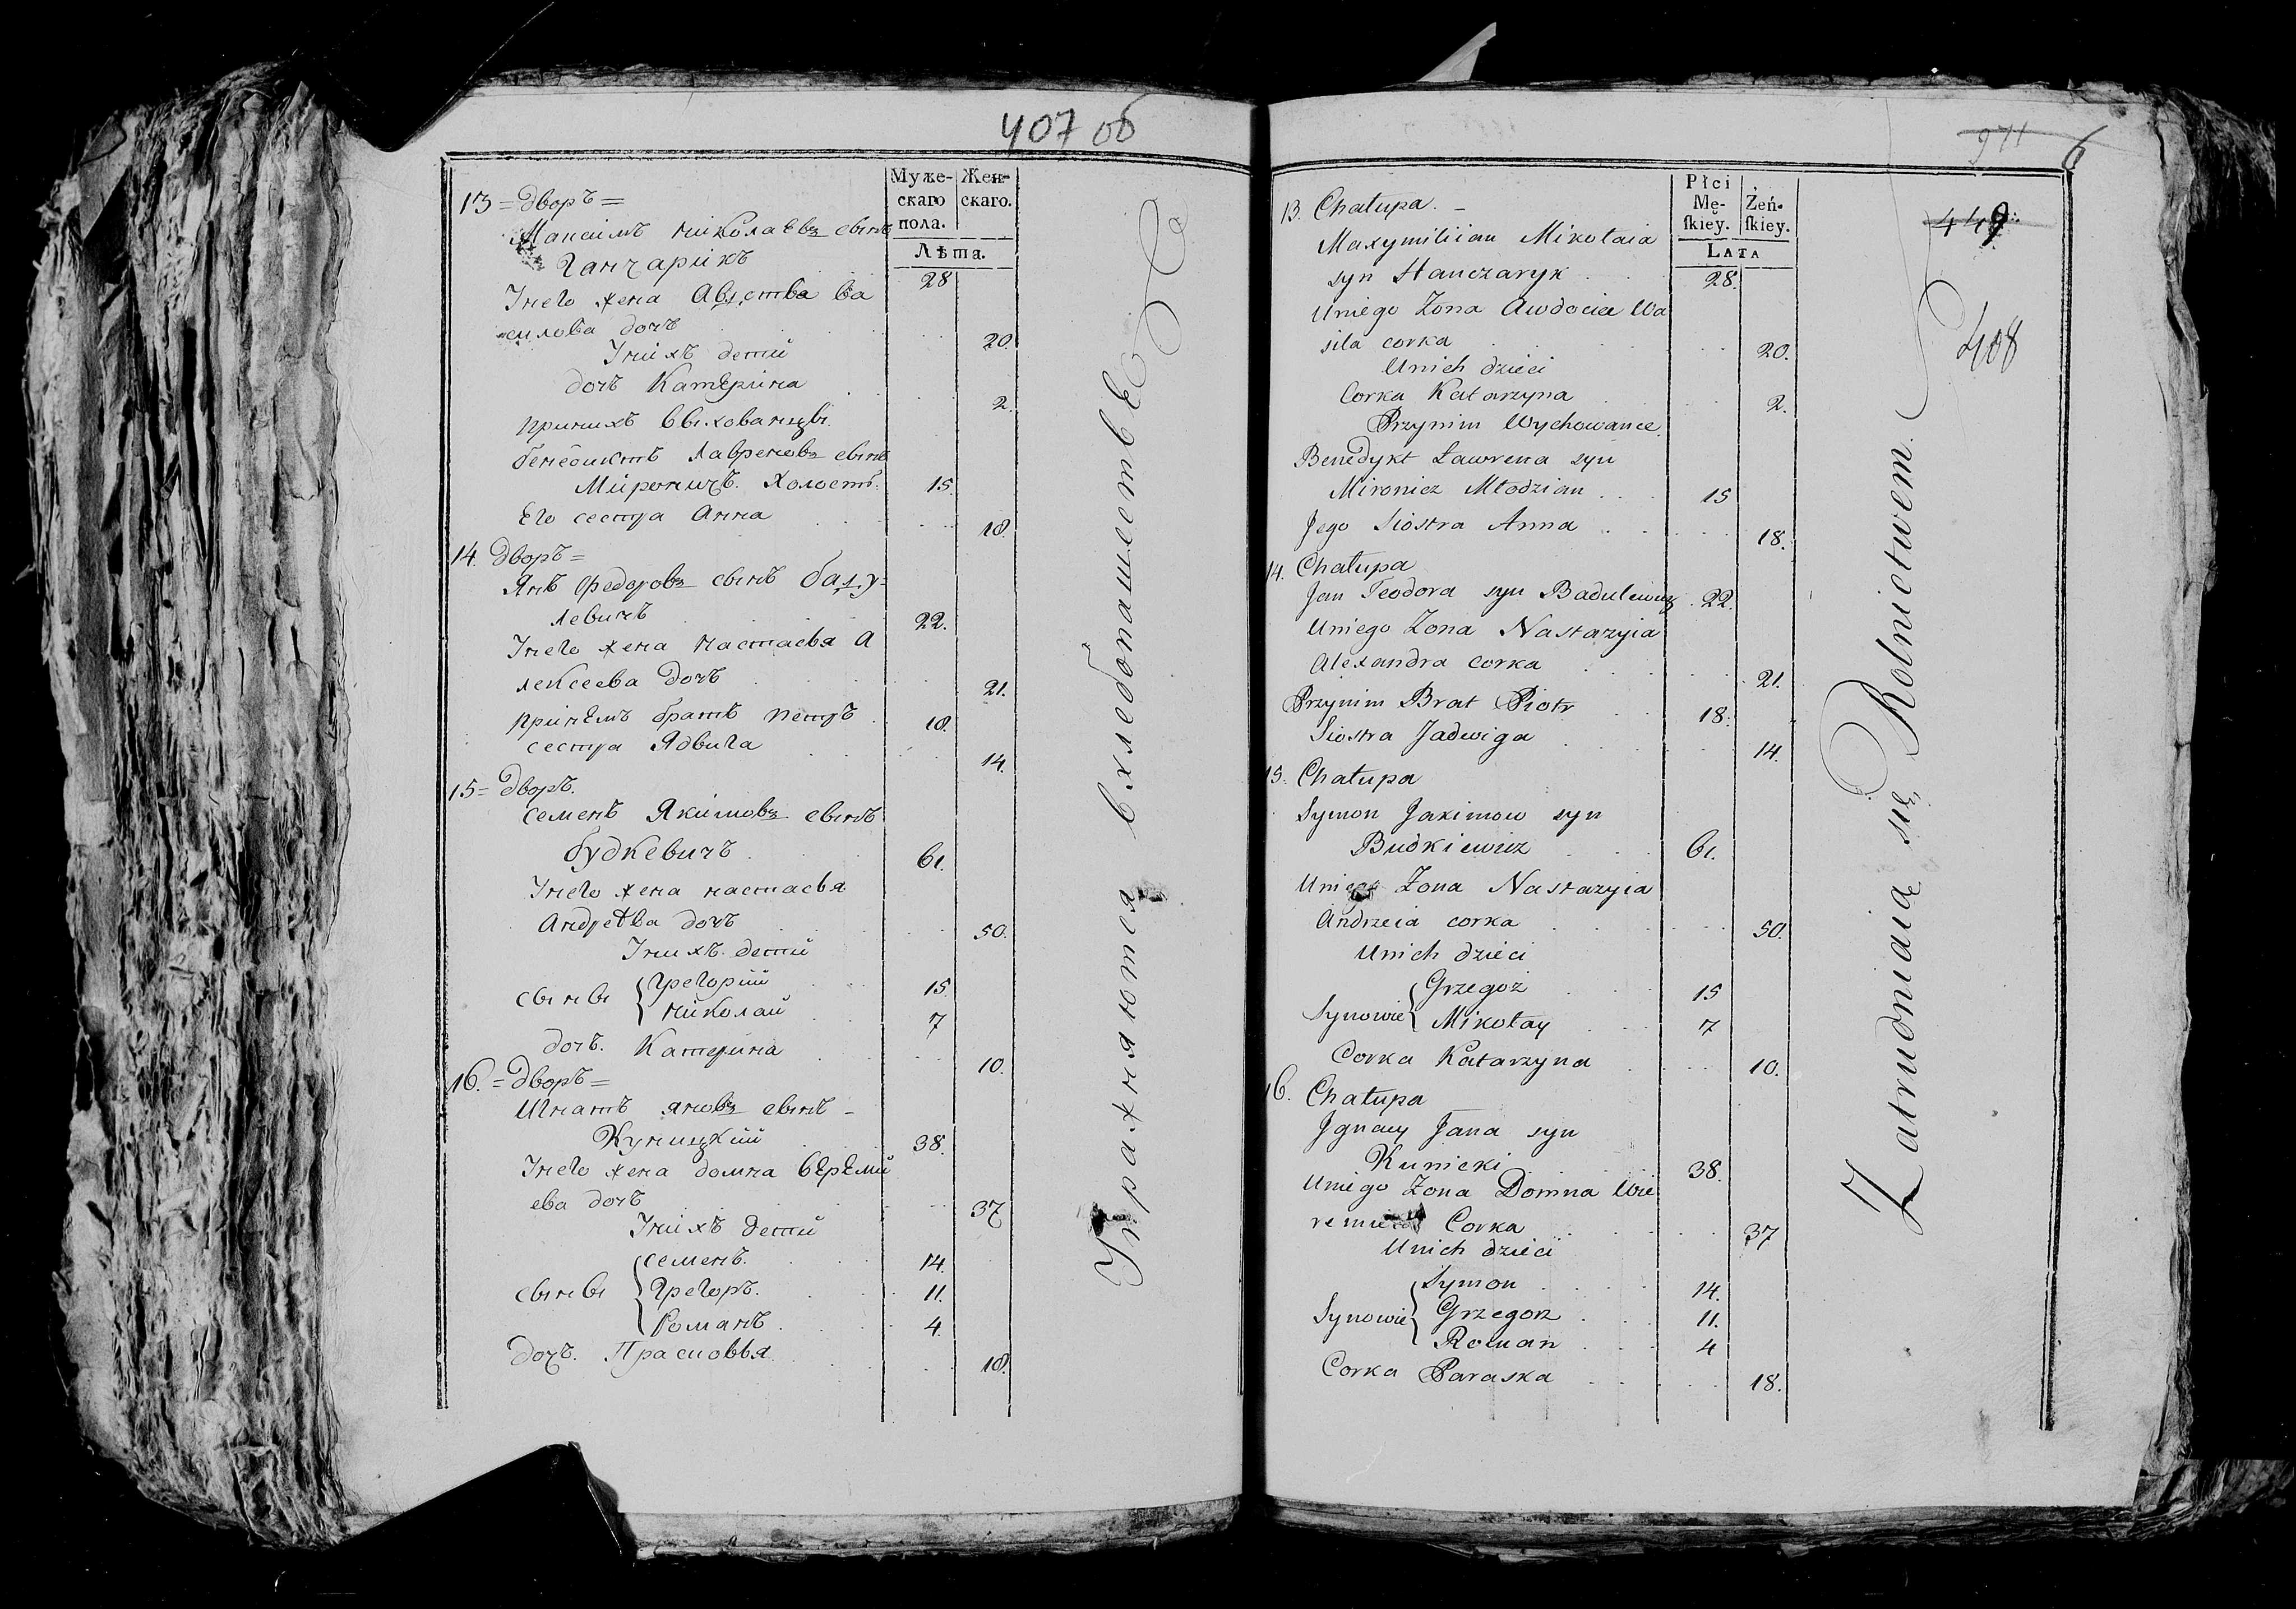 407 об
Муже-
скаго
пола.
Жен-
скаго.
Лѣта.
13 = Дворъ =
Максимъ Николаевъ сынъ
Ганчарикъ 28
У него жена Авдотья Ва
силова дочь 20.
У них детей
дочь Катерина 2.
При них выхованцы
Бенедиктъ Лавреновъ сынъ
Мироничъ. Холостъ. 15.
Его сестра Анна 18.
14. Дворъ =
Янъ Федоровъ сынъ Баду-
левичъ 22.
У него жена Настасья А
лексеева дочь 21.
При нем братъ Петръ 18.
сестра Ядвига 14.
15 = Дворъ.
Семенъ Якимовъ сынъ
Будкевичъ 61.
У него жена Настасья
Андреева дочь 50.
У них детей
сыны { Грегорий 15.
Николай 7
дочь. Катерина 10.
16. = Дворъ =
Игнатъ Яновъ сынъ -
Куницкий 38.
У него жена Домна Вереми
ева дочь 37
У них детей
сыны { Семенъ. 14.
Грегоръ. 11.
Романъ. 4.
дочь. Прасковья 18.
Упражняются в хлебопашестве
971
6
449.
408
Płci
Mę-
ſkiey.
Żeń-
ſkiey.
LATA
13. Chałupa. -
Maxymiliian Mikołaia
syn Hanczaryk 28.
Uniego Żona Awdocia Wa
sila corka 20.
Unich dzieci
Corka Katarzyna 2.
Przynim Wychowance
Benedykt Ławrena syn
Mironicz Młodzian 15
Jego Siostra Anna 18.
14. Chałupa
Jan Teodora syn Badulewicz 22.
Uniego Żona Nastazyia
Alexandra corka 21.
Przynim Brat Piotr 18.
Siostra Jadwiga 14.
15. Chałupa
Symon Jakimow syn
Budkiewicz 61.
Uniego Żona Nastazyia
Andrzeia corka 50.
Unich dzieci
Synowie { Grzegoż 15
Mikołay 7
Corka Katarzyna 10.
16. Chałupa
Jgnacy Jana syn
Kunicki 38.
Uniego Żona Domna Wie
Corka 37
Unich dzieci
Synowie { Symon 14.
Grzegorz 11.
Roman 4
Corka Paraska 18.
Zatrudniaią się Rolnictwem.